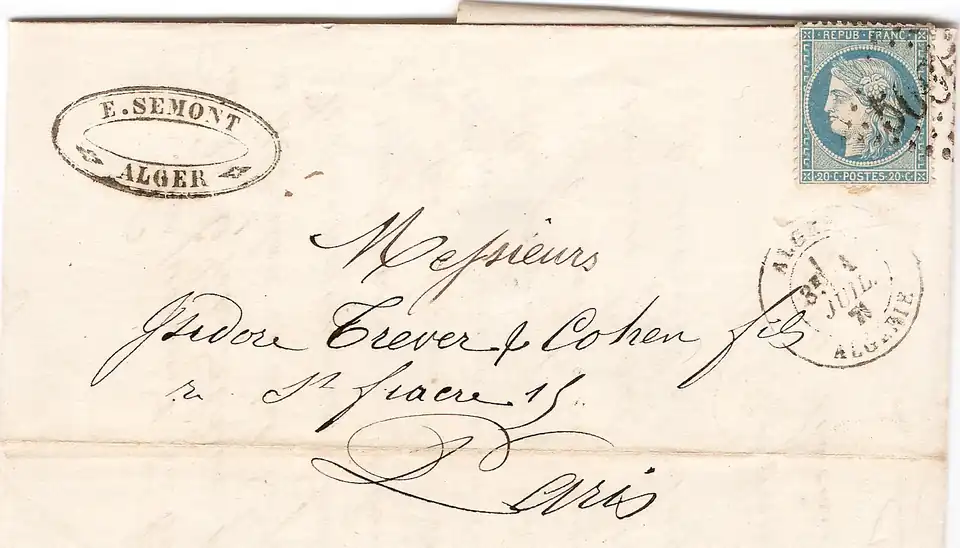 E. SEMONT
ALGER
REPUB. FRANC.
20·C·POSTES·20·C·
Messieurs
Isidore Trever & Cohen fils
r. St fiacre 15
Paris
ALGER
3E
4
JUIL.
ALGERIE